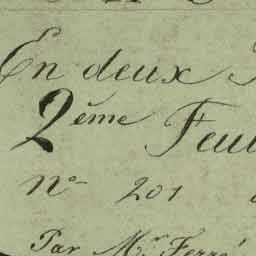 En deux
2ème Feui
nº 201
Par Mr Ferré